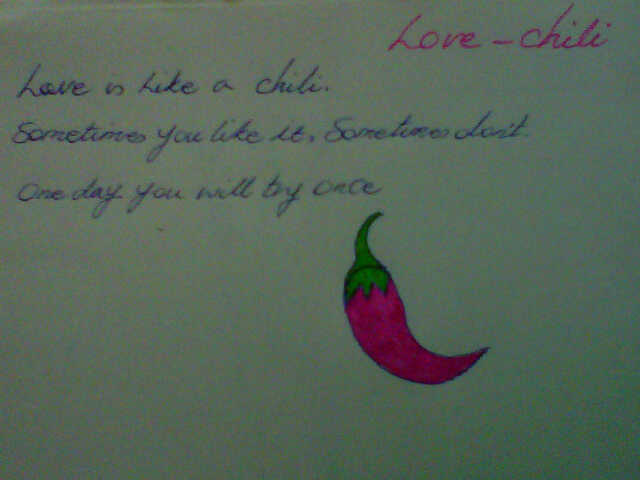 Love - chili
Love is like a chili.
Sometimes you like it, Sometimes don't.
One day you will try once